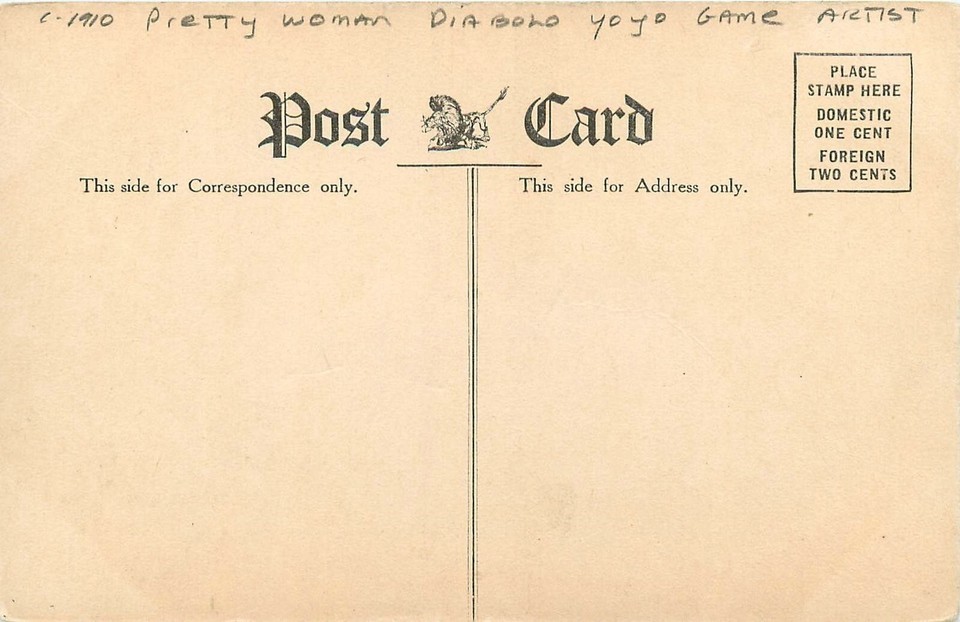 c-1910 Pretty WOMAN DIABOLO YOYO GAME ARTIST
Post Card
PLACE
STAMP HERE
DOMESTIC
ONE CENT
FOREIGN
TWO CENTS
This side for Correspondence only.
This side for Address only.